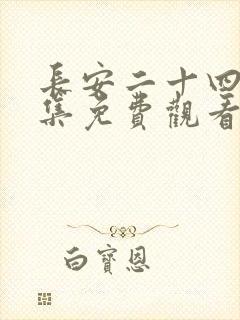 長安二十四
集免費觀看
白寶恩